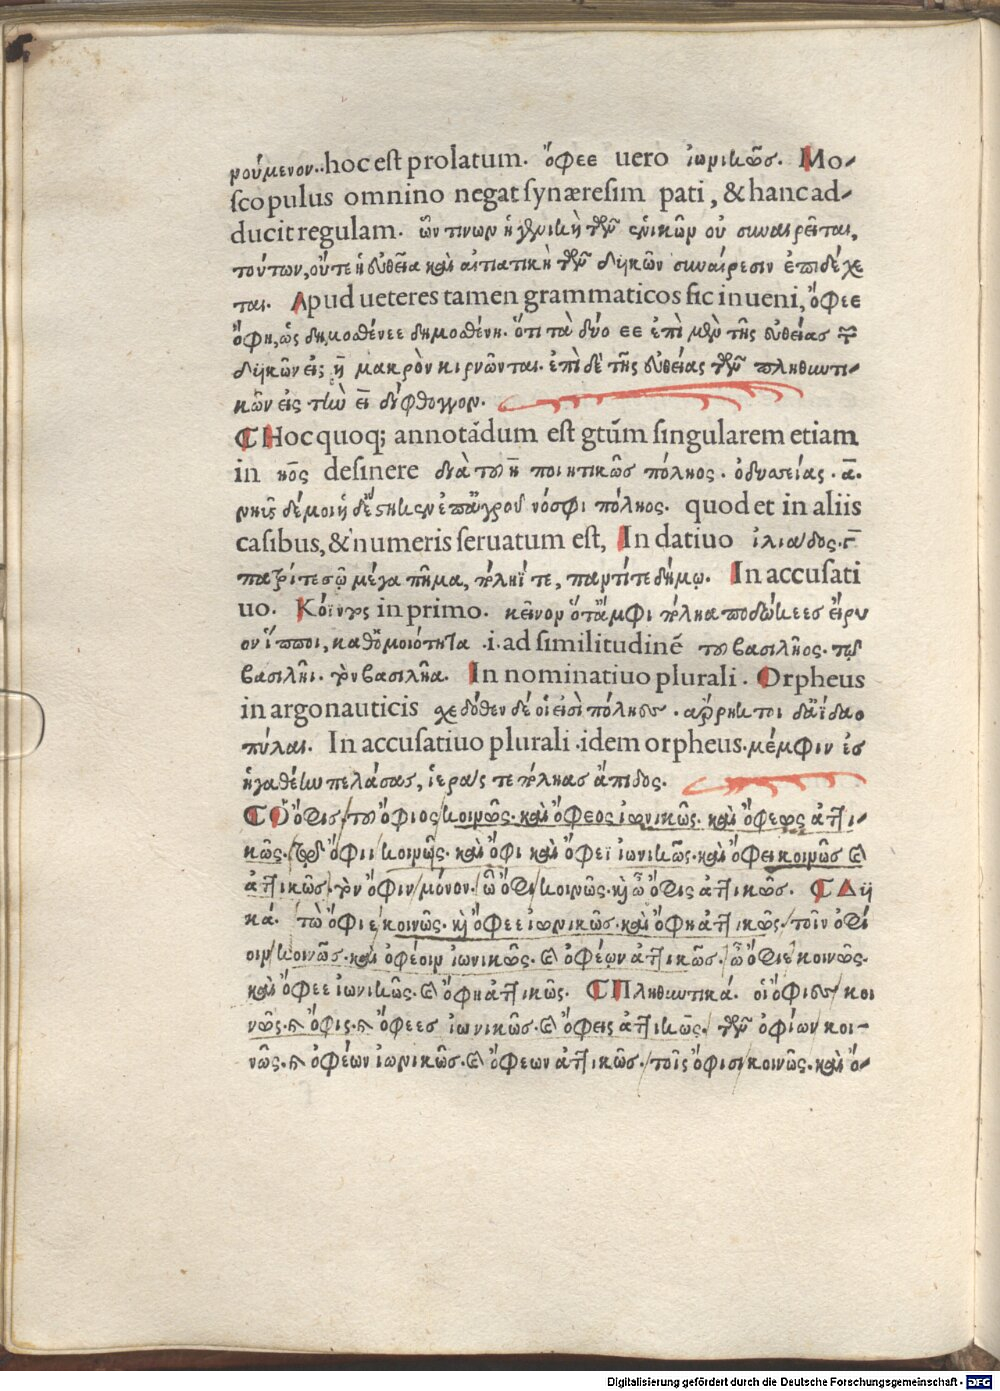 ρούμενον..hoc eſt prolatum. ὄφεε uero ἰωνικῶς. Mo-
ſcopulus omnino negat ſynæreſim pati, & hanc ad-
ducit regulam. ὧν τινων ἡ γενικὴ τῶν ἑνικῶν οὐ συναιρεῖται,
τούτων, οὔτε ἡ εὐθεῖα καὶ αἰτιατικὴ τῶν δυϊκῶν συναίρεσιν ἐπιδέχε
ται. Apud ueteres tamen grammaticos ſic inueni, ὄφεε
ὄφη, ὡς δημοσθένεε δημοσθένη. ὅτι τὰ δύο εε ἐπὶ μὲν τῆς εὐθείας τῶν
δυϊκῶν εἰς η̄ μακρὸν κιρνῶνται. ἐπὶ δὲ τῆς εὐθείας τῶν πληθυντι-
κῶν εἰς τὴν ει δίφθογγον.
Hoc quoq; annotādum eſt gtūm ſingularem etiam
in ηος deſinere διὰ τοῦ η̄ ποιητικῶς πόληος. ὀδυσσείας. ᾱ.
νηῦς δέ μοι ἥδ' ἕστηκεν ἐπ' ἀγροῦ νόσφι πόληος. quod et in aliis
caſibus, & numeris ſeruatum eſt, In datiuo ἰλιάδος. γ̄
πατρί τε σῷ μέγα πῆμα, πόληΐ τε, παντί τε δήμῳ. In accuſati
uo. Κόϊντος in primo. κεῖνον ὅτ' ἀμφὶ πόληα ποδώκεες εἴρυ
ον ἵπποι, καθ' ὁμοιότητα .i. ad ſimilitudinē τοῦ βασιλῆος. τῷ
βασιλῆι. τὸν βασιλῆα. In nominatiuo plurali. Orpheus
in argonauticis σχεδόθεν δέ οἱ εἰσὶ πόληες. ἄρρηκτοι δ' ἀΐδαο
πύλαι. In accuſatiuo plurali .idem orpheus. μέμφιν ἐς
ἠγαθέην πελάσας, ἱεράς τε πόληας ἄπιδος.
Ὁ ὄφις, τοῦ ὄφιος κοινῶς. καὶ ὄφεος ἰωνικῶς. καὶ ὄφεως ἀττι-
κῶς. τῷ ὄφιι κοινῶς. καὶ ὄφι καὶ ὄφεϊ ἰωνικῶς. καὶ ὄφει κοινῶς καὶ
ἀττικῶς. τὸν ὄφιν μόνον. ὦ ὄφι κοινῶς. καὶ ὦ ὄφις ἀττικῶς. Δυϊ
κά. τὼ ὄφιε κοινῶς. καὶ ὄφεε ἰωνικῶς. καὶ ὄφη ἀττικῶς. τοῖν ὀφί
οιν κοινῶς. καὶ ὀφέοιν ἰωνικῶς. καὶ ὀφέῳν ἀττικῶς. ὦ ὄφιε κοινῶς.
καὶ ὄφεε ἰωνικῶς. καὶ ὄφη ἀττικῶς. Πληθυντικά. οἱ ὄφιες κοι
νῶς. καὶ ὄφις. καὶ ὄφεες ἰωνικῶς. καὶ ὄφεις ἀττικῶς. τῶν ὀφίων κοι-
νῶς. καὶ ὀφέων ἰωνικῶς. καὶ ὄφεων ἀττικῶς. τοῖς ὄφισι κοινῶς. καὶ ὄ-
Digitalisierung gefördert durch die Deutsche Forschungsgemeinschaft - DFG